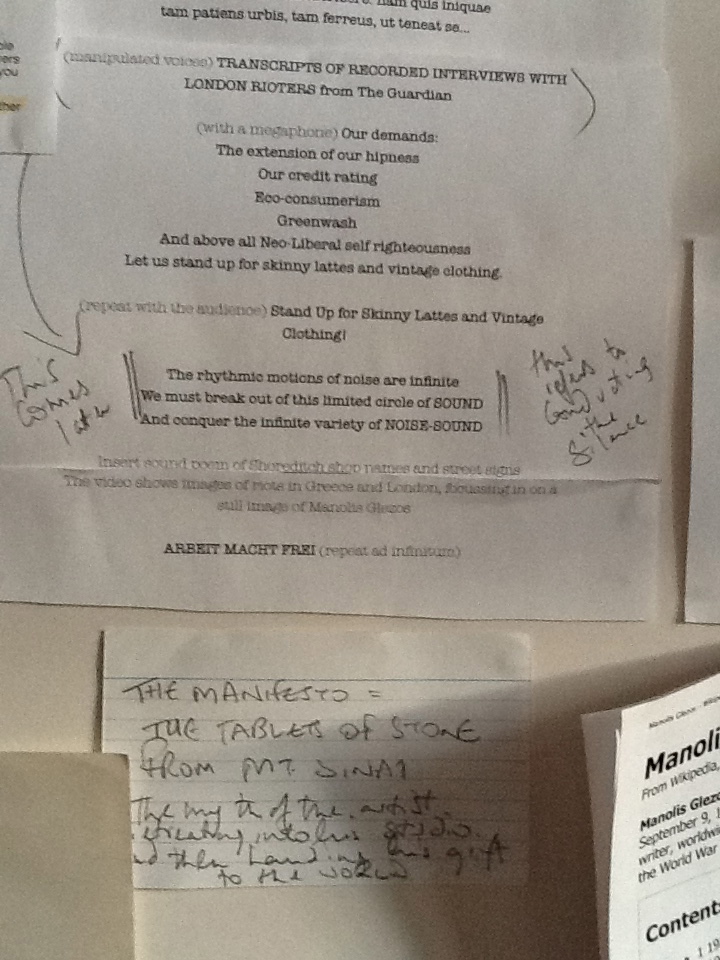 nam quis iniquae
tam patiens urbis, tam ferreus, ut teneat se...
ers
you
ther
(manipulated voices) TRANSCRIPTS OF RECORDED INTERVIEWS WITH
LONDON RIOTERS from The Guardian
(with a megaphone) Our demands:
The extension of our hipness
Our credit rating
Eco-consumerism
Greenwash
And above all Neo-Liberal self righteousness
Let us stand up for skinny lattes and vintage clothing.
(repeat with the audience) Stand Up for Skinny Lattes and Vintage
Clothing!
This
comes
later
The rhythmic motions of noise are infinite
We must break out of this limited circle of SOUND
And conquer the infinite variety of NOISE-SOUND
this
refers to
conducting
the
silence
Insert sound poem of Shoreditch shop names and street signs
The video shows images of riots in Greece and London, focussing in on a
still image of Manolis Glezos
ARBEIT MACHT FREI (repeat ad infinitum)
THE MANIFESTO =
THE TABLETS OF STONE
FROM MT. SINAI
The myth of the artist
retreating into his studio
and then handing his gift
to the world
Manoli
From Wikipedia,
Manolis Glezo
September 9, 1
writer, worldwi
the World War
Contents
1 19